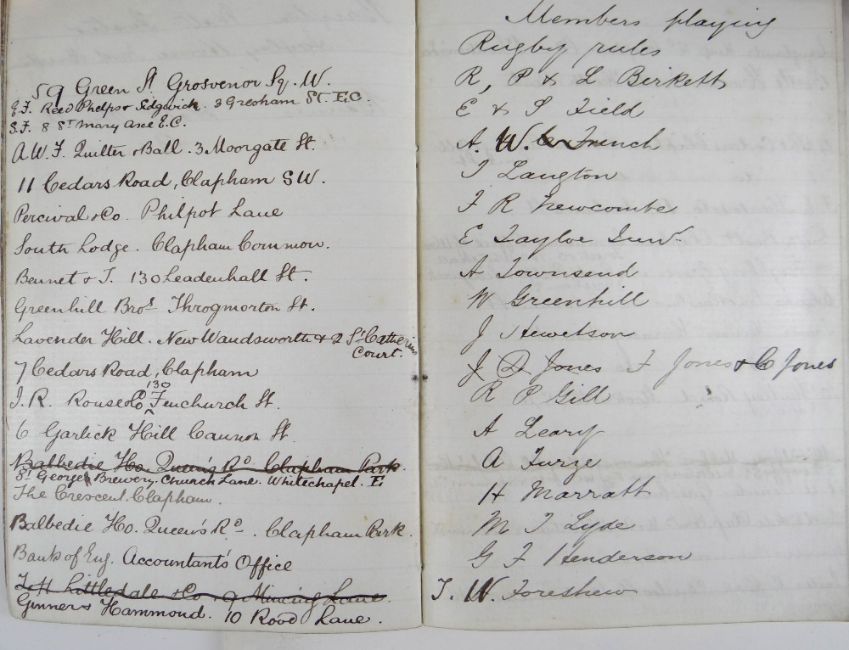 59 Green St. Grosvenor Sq. W.
E.F. Reed Phelps & Sedgwick. 3 Gresham St. E.C.
S.F. 8 St Mary Axe E.C.
A.W.F. Quilter & Ball. 3 Moorgate St.
11 Cedars Road, Clapham SW.
Percival & Co. Philpot Lane
South Lodge. Clapham Common.
Bennet & T. 130 Leadenhall St.
Greenhill Bros. Throgmorton St.
Lavender Hill. New Wandsworth & 2 St Catherine
Court.
7 Cedars Road, Clapham
J.R. Rouse & Co 130 Fenchurch St.
6 Garlick Hill Cannon St.
Balbedie Ho. Queen's Rd. Clapham Park.
St George's Brewery, Church Lane. Whitechapel. E.
The Crescent, Clapham.
Balbedie Ho. Queen's Rd. Clapham Park.
Bank of Eng. Accountants' Office
Littledale & Co. 9 Mincing Lane.
Ginner & Hammond. 10 Rood Lane.
Members playing
Rugby rules
R, P & L Birkett
E & S Field
A. W. French
T Langton
F R Newcombe
E Tayloe Junr.
A Townsend
W Greenhill
J Hewetson
J D Jones F Jones & C Jones
R P Gill
A Leary
A Furze
H Marratt
M T Lyde
G F Henderson
T. W. Foreshew